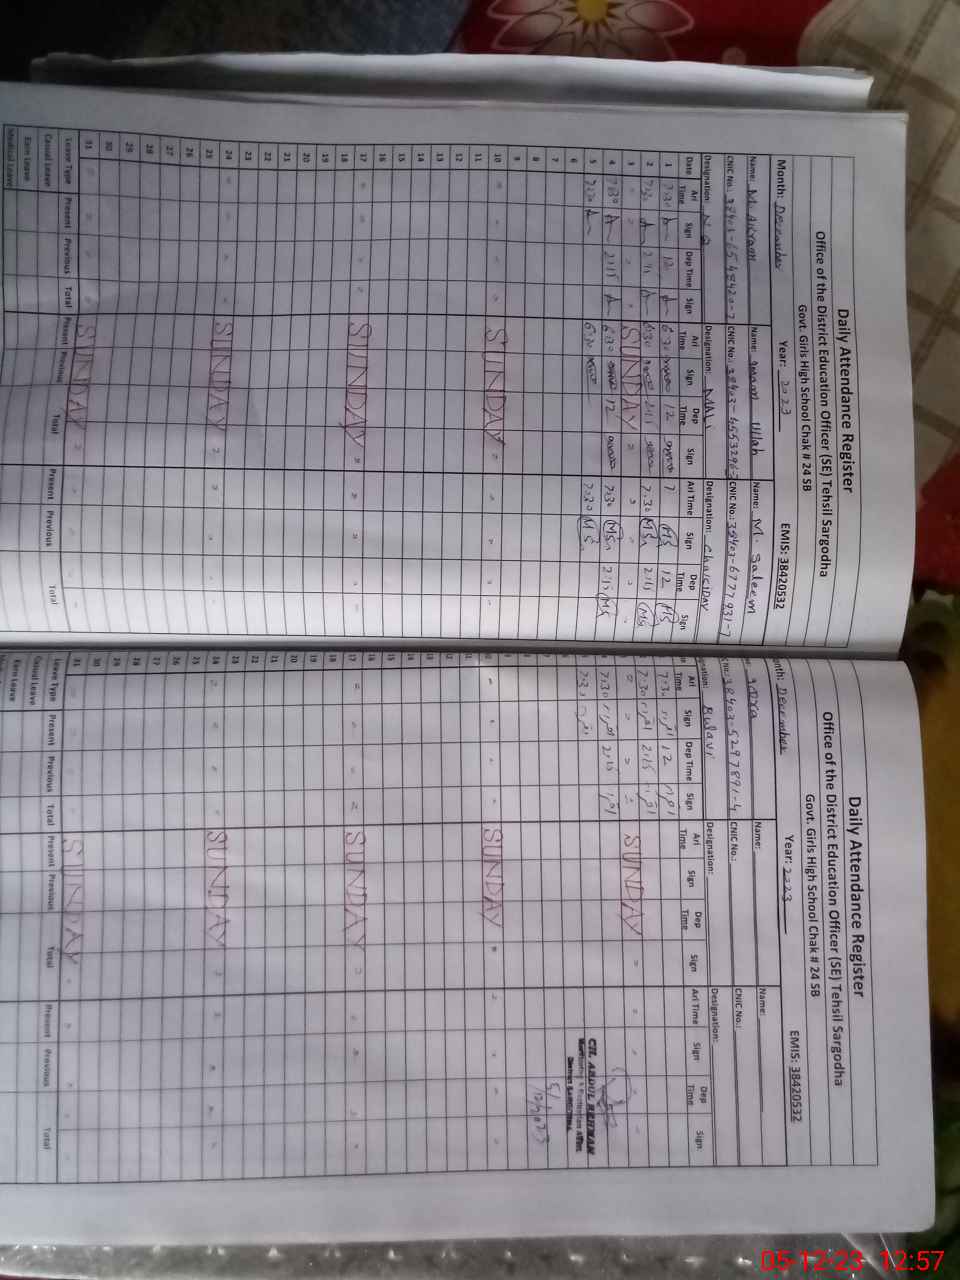 Daily Attendance Register
Office of the District Education Officer (SE) Tehsil Sargodha
Govt. Girls High School Chak # 24 SB
Month: December Year: 2023 EMIS: 38420532
Name: M. Akram Name: Ullah Name: M. Saleem
CNIC No.: CNIC No.: CNIC No.: 38403-6777931-7
Designation: N.Q Designation: MALi Designation:
Date Ari Time Sign Dep Time Sign Ari Time Sign Dep Time Sign Ari Time Sign Dep Time Sign
1 7:30 12 6:30 12 7 MS 12 MS
2 7:30 2:15 6:30 2:15 7:30 MS 2:15 MS
3 SUNDAY
4 7:30 2:15 6:30 12 7:30 MS 2:15 MS
5 7:30 6:30 7:30 MS
6
7
8
9
10 SUNDAY
11
12
13
14
15
16
17 SUNDAY
18
19
20
21
22
23
24 SUNDAY
25
26
27
28
29
30
31 SUNDAY
Leave Type Present Previous Total Present Previous Total Present Previous Total
Casual Leave
Earn Leave
Medical Leave
Daily Attendance Register
Office of the District Education Officer (SE) Tehsil Sargodha
Govt. Girls High School Chak # 24 SB
nth: December Year: 2023 EMIS: 38420532
Name: Name:
38403-5297891-4 CNIC No.: CNIC No.:
gnation: Bulavi Designation: Designation:
Ari Time Sign Dep Time Sign Ari Time Sign Dep Time Sign Ari Time Sign Dep Time Sign
7:30 12
7:30 2:15
SUNDAY
7:30 2:15
CH. ABDUL REHMAN
5/12/2023
7
8
9
10 SUNDAY
11
12
13
14
15
16
17 SUNDAY
18
19
20
21
22
23
24 SUNDAY
25
26
27
28
29
30
31 SUNDAY
Leave Type Present Previous Total Present Previous Total Present Previous Total
Casual Leave
Earn Leave
05-12-23 12:57